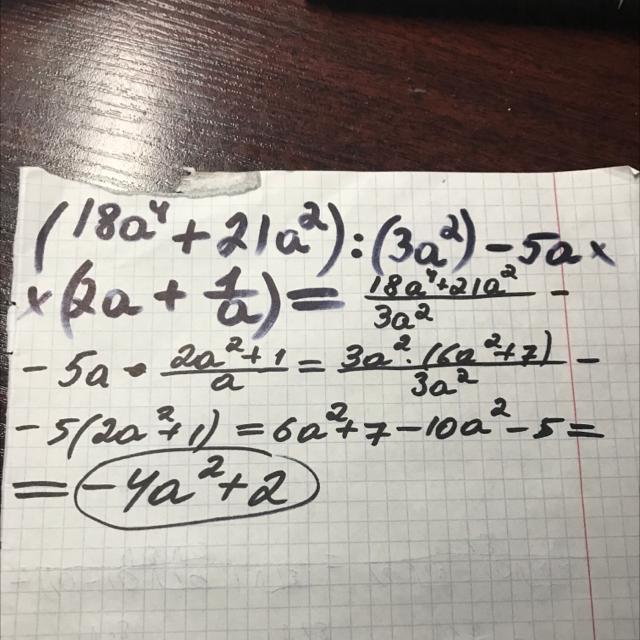 (18a⁴ + 21a²) : (3a²) - 5a ×
× (2a + 1/a) = (18a⁴+21a²)/(3a²) -
- 5a · (2a²+1)/a = (3a² · (6a²+7))/(3a²) -
- 5(2a²+1) = 6a²+7-10a²-5 =
= -4a²+2